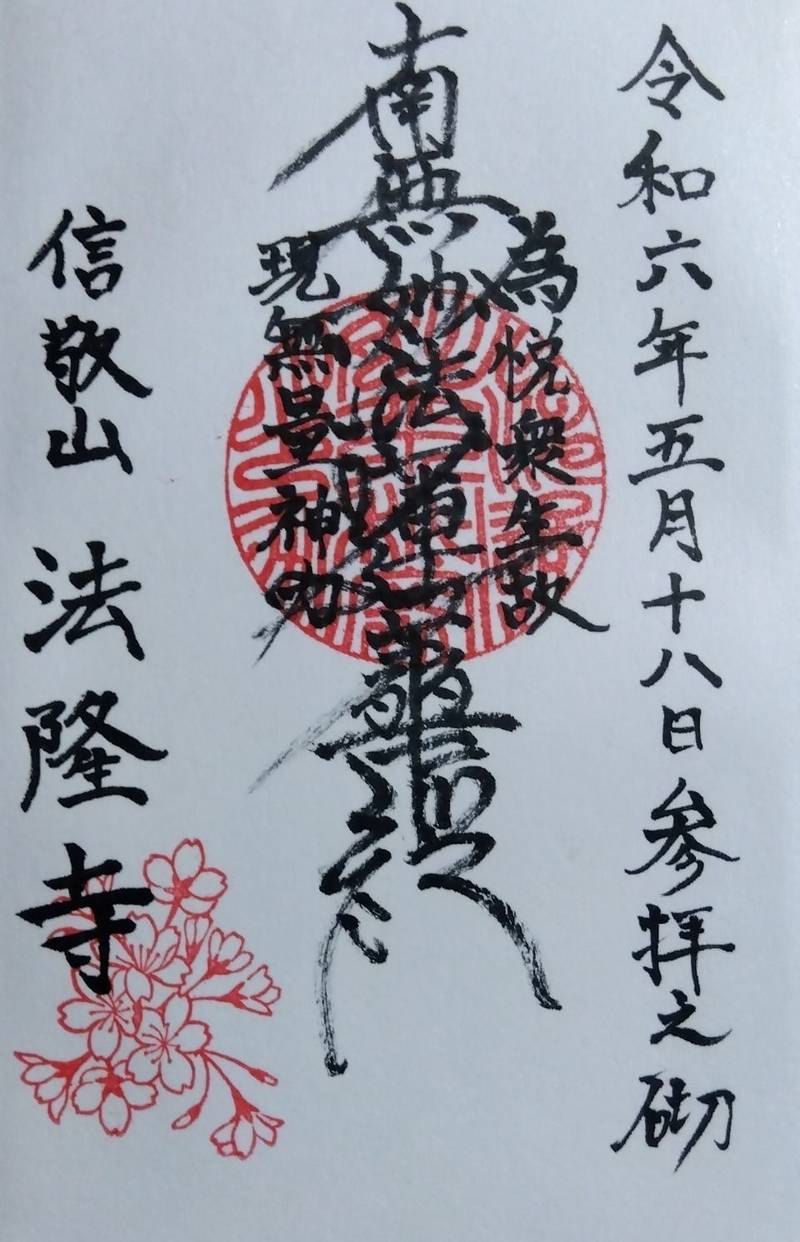 令和六年五月十八日参拝之砌
為悦衆生故
南無妙法蓮華経
現無量神力
信敬山 法隆寺